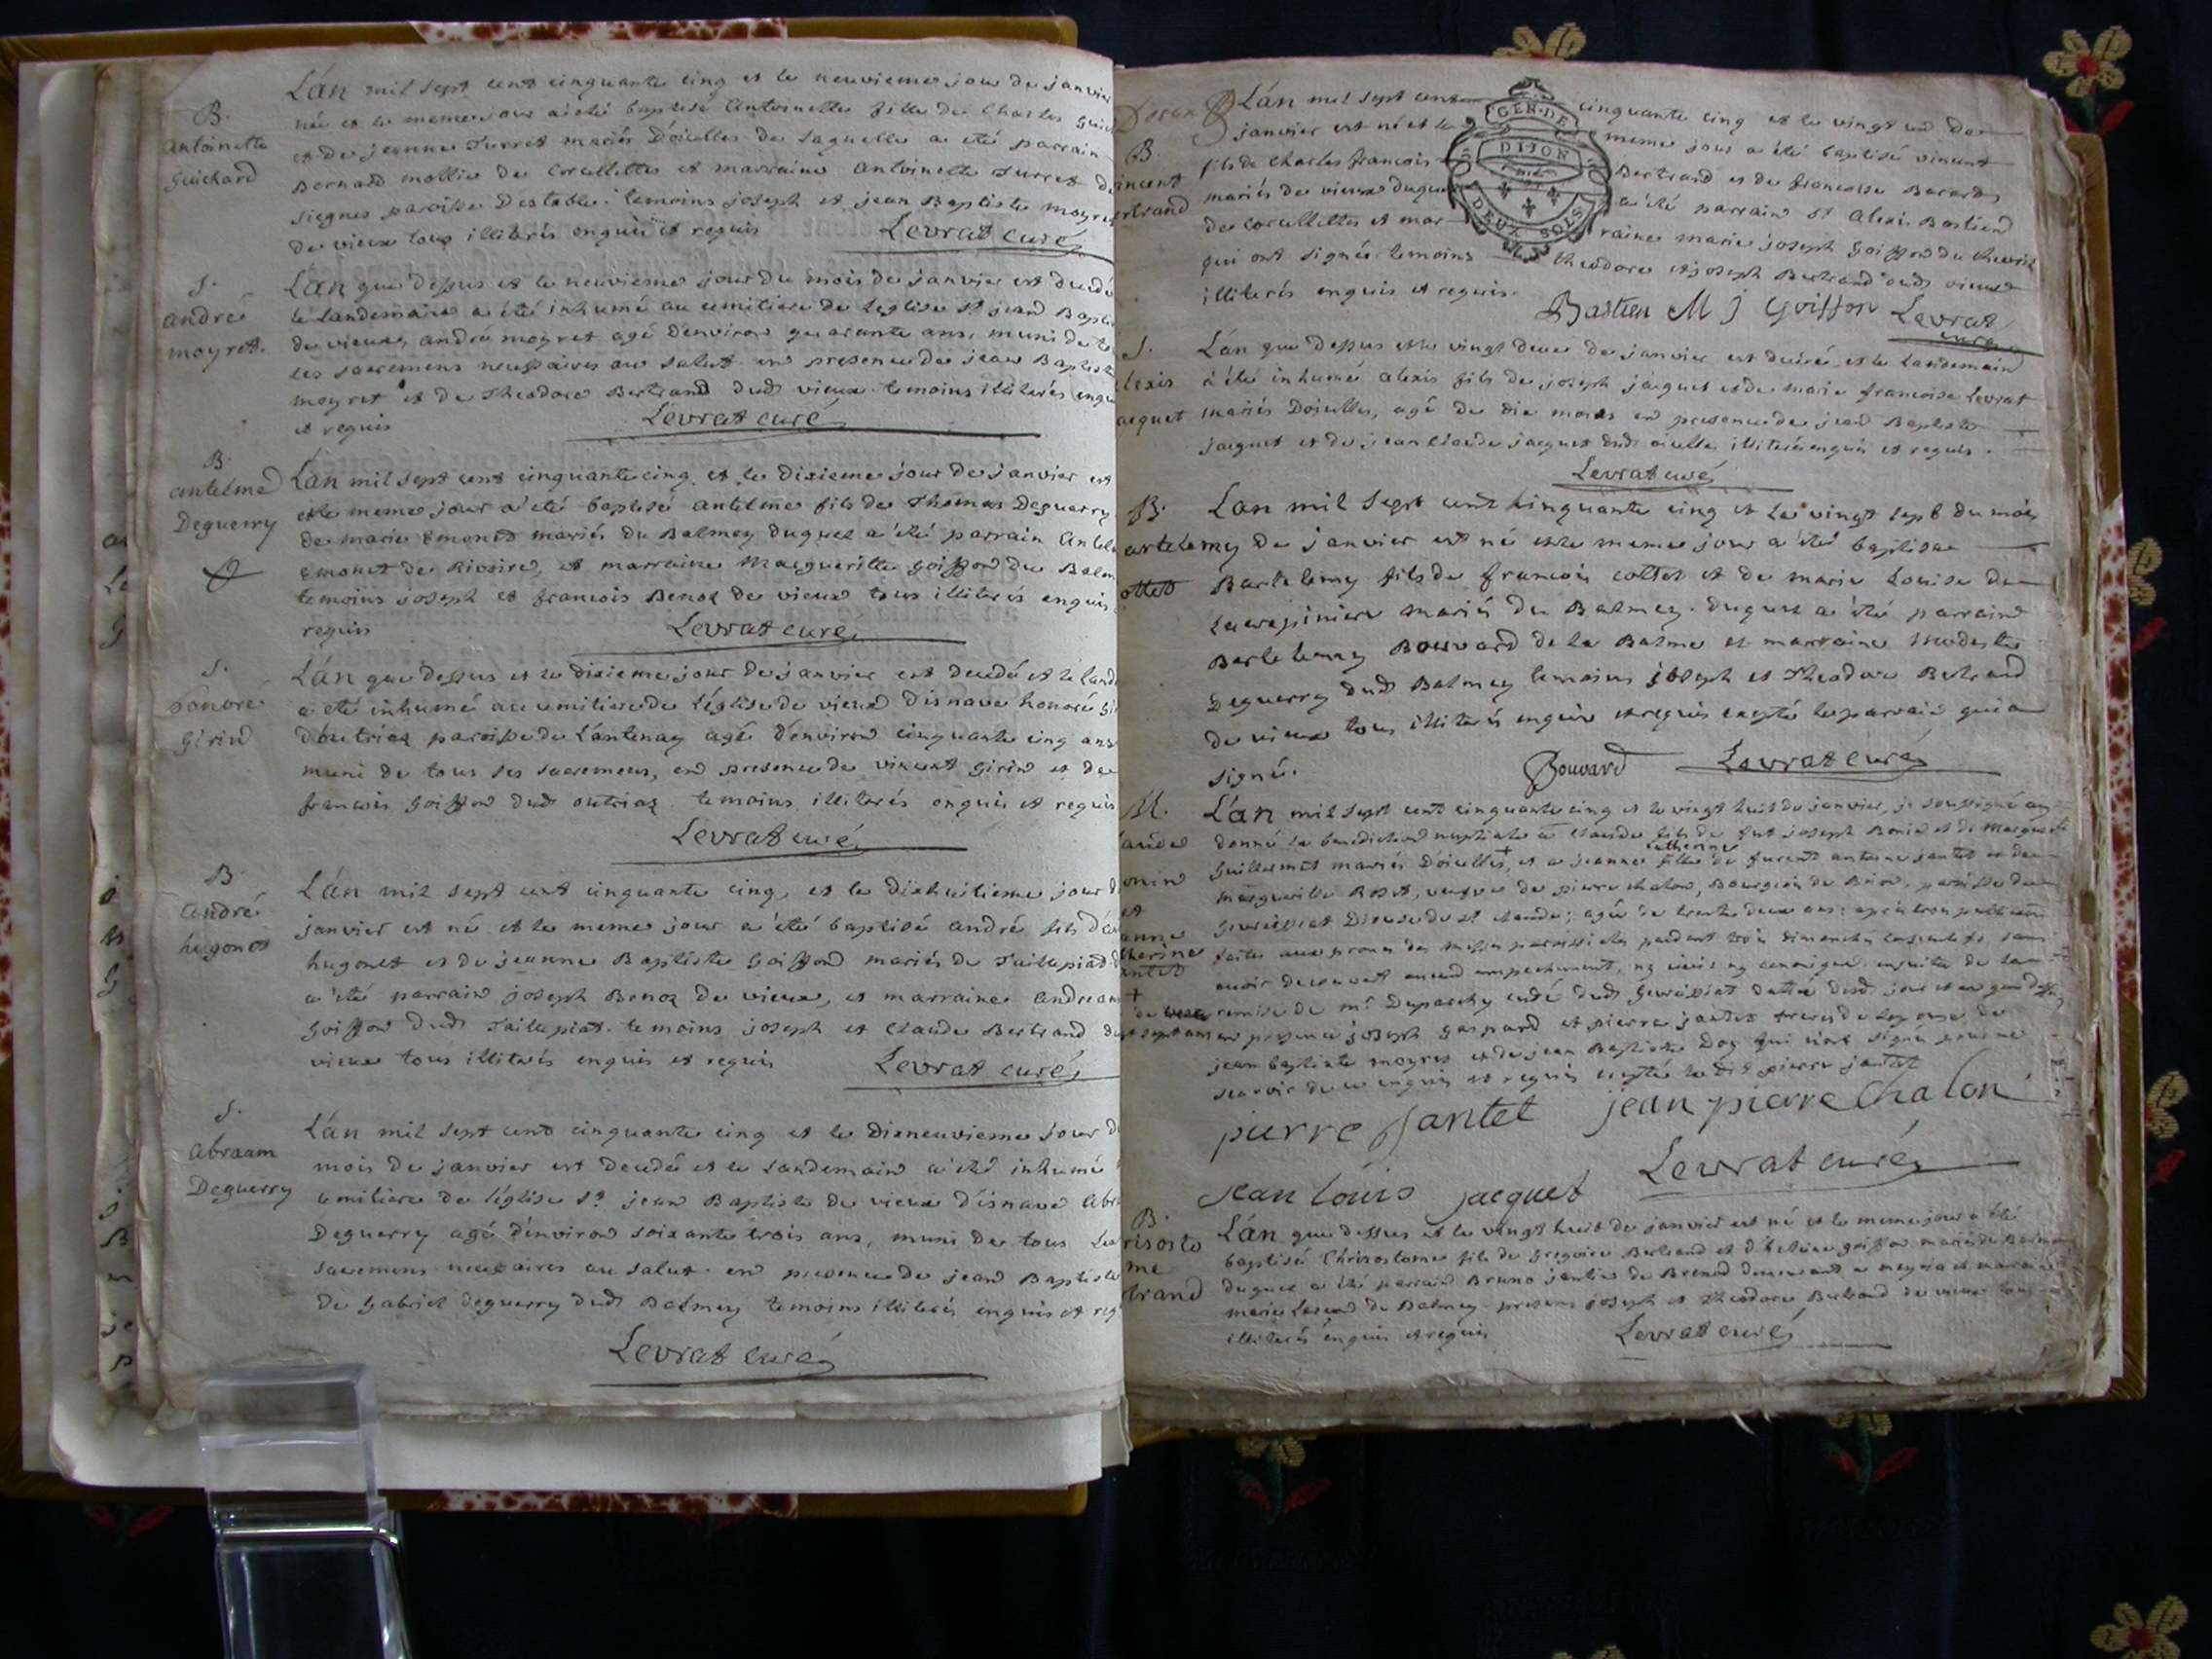 L'an mil sept cent cinquante cinq et le neuvieme jour de janvier
B.
né et le meme jour a été baptisé antoinette fille de Charles
antoinette
et de jeanne Turret mariés Doielles de laquelle a été parrain
guichard
Bernard mollie de Corcellettes et marraine antoinette Turret de
siegnes paroisse Destable. temoins joseph et jean Baptiste moyret
de vieux tous illiterés enquis et requis Levrat curé
S.
L'an que dessus et le neuvieme jour du mois de janvier est decedé
andré
le landemain a été inhumé au cemitiere de leglise st jean Baptiste
moyret.
de vieux, andré moyret agé d'environ quarante ans, muni de
les sacremens necessaires au salut. en presence de jean Baptiste
moyret et de Theodore Bertrand dudt vieux temoins illiterés
et requis Levrat curé
B.
antelme
L'an mil sept cent cinquante cinq et le dixieme jour de janvier est
Deguerry
et le meme jour a été baptisé antelme fils de Thomas Deguerry
de marie Emonet mariés du Balmey duquel a été parrain
Emonet de Rivoire, et marraine Margueritte goiffon du
temoins joseph et francois Benoz de vieux tous illiterés enquis
requis Levrat curé
S.
honoré
L'an que dessus et le dixieme jour de janvier est decedé et le
girin
a été inhumé au cemitiere de l'église de vieux disnave honoré
d'outriaz paroisse de Lantenay agé d'environ cinquante cinq ans
muni de tous ses sacremens, en presence de vincent girin et de
francois goiffon dudt outriaz temoins illiterés enquis et requis
Levrat curé
B.
andré
L'an mil sept cent cinquante cinq, et le dixhuitieme jour de
hugonet
janvier est né et le meme jour a été baptisé andré fils
hugonet et de jeanne Baptiste goiffond mariés de Taillepiad
a été parrain joseph Benoz de vieux, et marraine
goiffon dudt Taillepiat. temoins joseph et Claude Bertrand
vieux tous illiterés enquis et requis Levrat curé
S.
abraam
L'an mil sept cent cinquante cinq et le dixneuvieme jour du
Deguerry
mois de janvier est decedé et le landemain a été inhumé
cemitiere de l'église st jean Baptiste de vieux d'isnave
Deguerry agé d'environ soixante trois ans, muni de tous les
sacremens necessaires au salut. en presence de jean Baptiste
de gabriel deguerry dudt Balmey temoins illiterés enquis et
Levrat curé
L'an mil sept cent cinquante cinq et le vingt un de
GEN. DE DIJON
DEUX SOLS
B.
janvier est né et le meme jour a été baptisé vincent
fils de Charles francois Bertrand et de francoise
mariés de vieux duquel a été parrain sr alexi Bastien
de Corcellettes et marraine marie joseph goiffon du
qui ont signé temoins theodore et joseph Bertrand dudt vieux
illiterés enquis et requis.
Bastien M J Goiffon Levrat curé
S.
L'an que dessus et le vingt deux de janvier est decedé et le landemain
a été inhumé alexis fils de joseph jacquet et de marie francoise Levrat
mariés Doielles, agé de dix mois en presence de jean Baptiste
jacquet et de jean Claude jacquet dudt oielle illiterés enquis et requis.
Levrat curé
B.
L'an mil sept cent cinquante cinq et le vingt sept du mois
de janvier est né et le meme jour a été baptisé
Bartelemy fils de francois Collet et de marie Louise de
mariés du Balmey. duquel a été parrain
Bartelemy Bouvard de la Balme et marraine modeste
Deguerry dudt Balmey temoins joseph et Theodore Bertrand
de vieux tous illiterés enquis et requis excepté le parrain qui a
signé. Bouvard Levrat curé
M.
L'an mil sept cent cinquante cinq et le vingt huit de janvier, je soussigné ay
donné la benediction nuptiale a Claude fils de fut joseph Bonin et de
Guillermet mariés Doielles, et a jeanne Catherine fille de antoine jantet et de
veufve de pierre chalon, Bourgeois de
Diocese de st claude; agée de trente deux ans: apres trois publications
faites aux prones des messes paroissiales pendant trois dimanches sans
avoir decouvert aucun empechement, ny civil ny canonique ensuite de la
remise de mr curé dudt datté dudt jour et an que dessus
en presence joseph gaspard et pierre jantet freres de
jean baptiste moyret et de jean Baptiste qui n'ont signé pour ne
scavoir de ce enquis et requis excepté le dit pierre jantet
pierre Jantet jean pierre Chalon
Levrat curé
Jean louis jacquet
B.
L'an que dessus et le vingt huit de janvier est né et le meme jour a été
baptisé Chrisostome fils de gregoire Bertrand et goiffon mariés du
duquel a été parrain Bruno jantin de Brenod demeurant a meyria et marraine
marie du Balmey. presens joseph et theodore Bertrand de vieux tous
illiterés enquis et requis Levrat curé